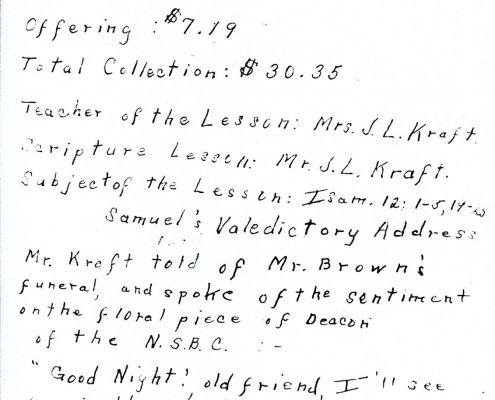 Offering : $7.19
Total Collection: $30.35
Teacher of the Lesson: Mrs. J. L. Kraft.
Scripture Lesson: Mr. J. L. Kraft.
Subject of the Lesson: I Sam. 12: 1-5, 19-
Samuel's Valedictory Address
Mr. Kraft told of Mr. Brown's
funeral, and spoke of the sentiment
on the floral piece of Deacon
of the N.S.B.C. :-
"Good Night! old friend, I'll see